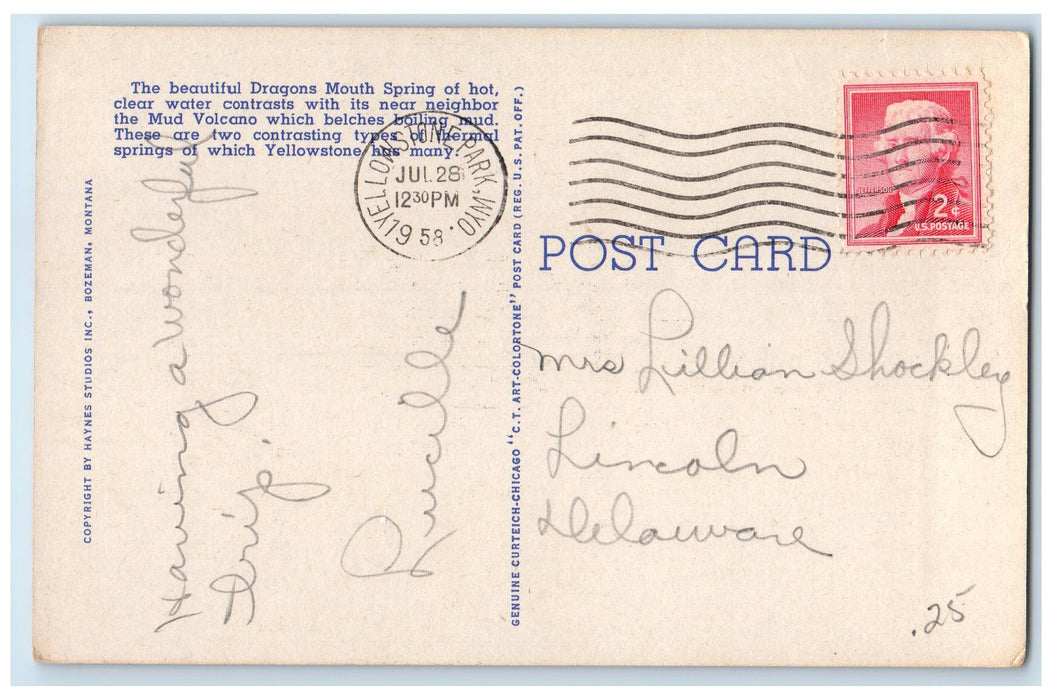 The beautiful Dragons Mouth Spring of hot,
clear water contrasts with its near neighbor
the Mud Volcano which belches boiling mud.
These are two contrasting types of thermal
springs of which Yellowstone has many.
COPYRIGHT BY HAYNES STUDIOS INC., BOZEMAN, MONTANA
Having a wonderful
Trip.
Lucille
YELLOWSTONE PARK, WYO.
JUL 28
12 30 PM
1958
GENUINE CURTEICH-CHICAGO "C.T. ART-COLORTONE" POST CARD (REG. U.S. PAT. OFF.)
JEFFERSON
2¢
U.S. POSTAGE
POST CARD
Mrs Lillian Shockley
Lincoln
Delaware
.25